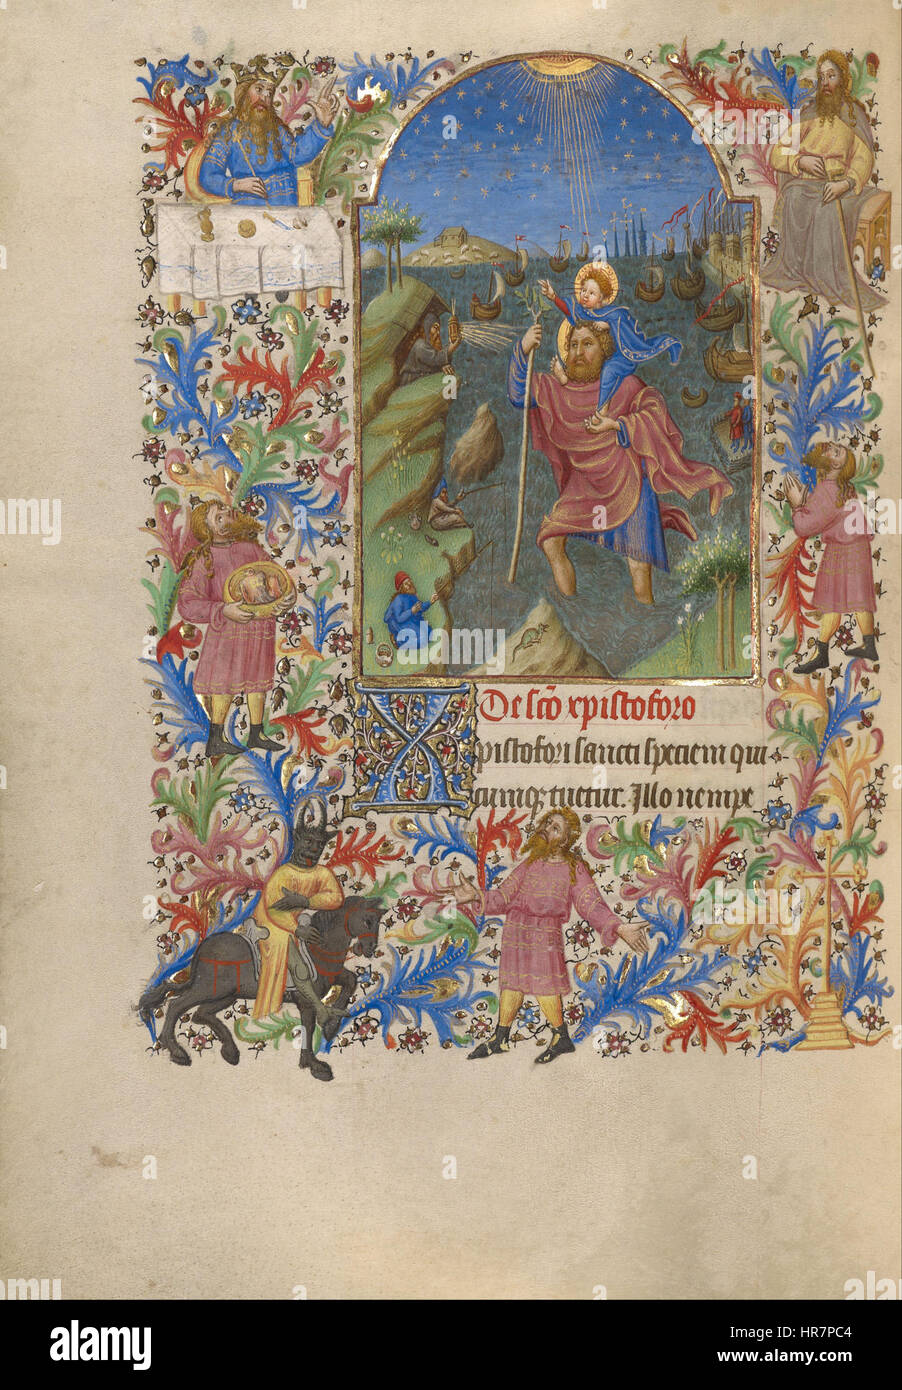 De scō xpistoforo
Xpistofori sancti speciem qui
cumqꝫ tuetur. Illo nempe
alamy
Image ID: HR7PC4
www.alamy.com